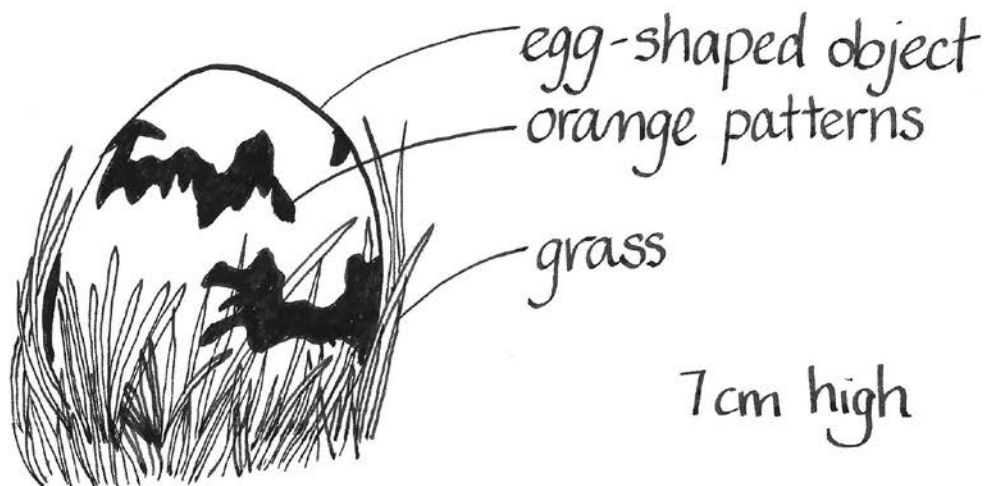 egg-shaped object
orange patterns
grass
7cm high